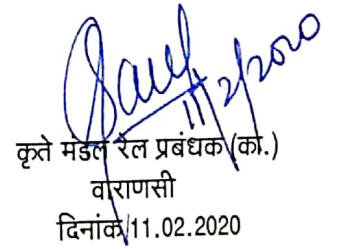 11/2/2020
कृते मंडल रेल प्रबंधक (का.)
वाराणसी
दिनांक/11.02.2020